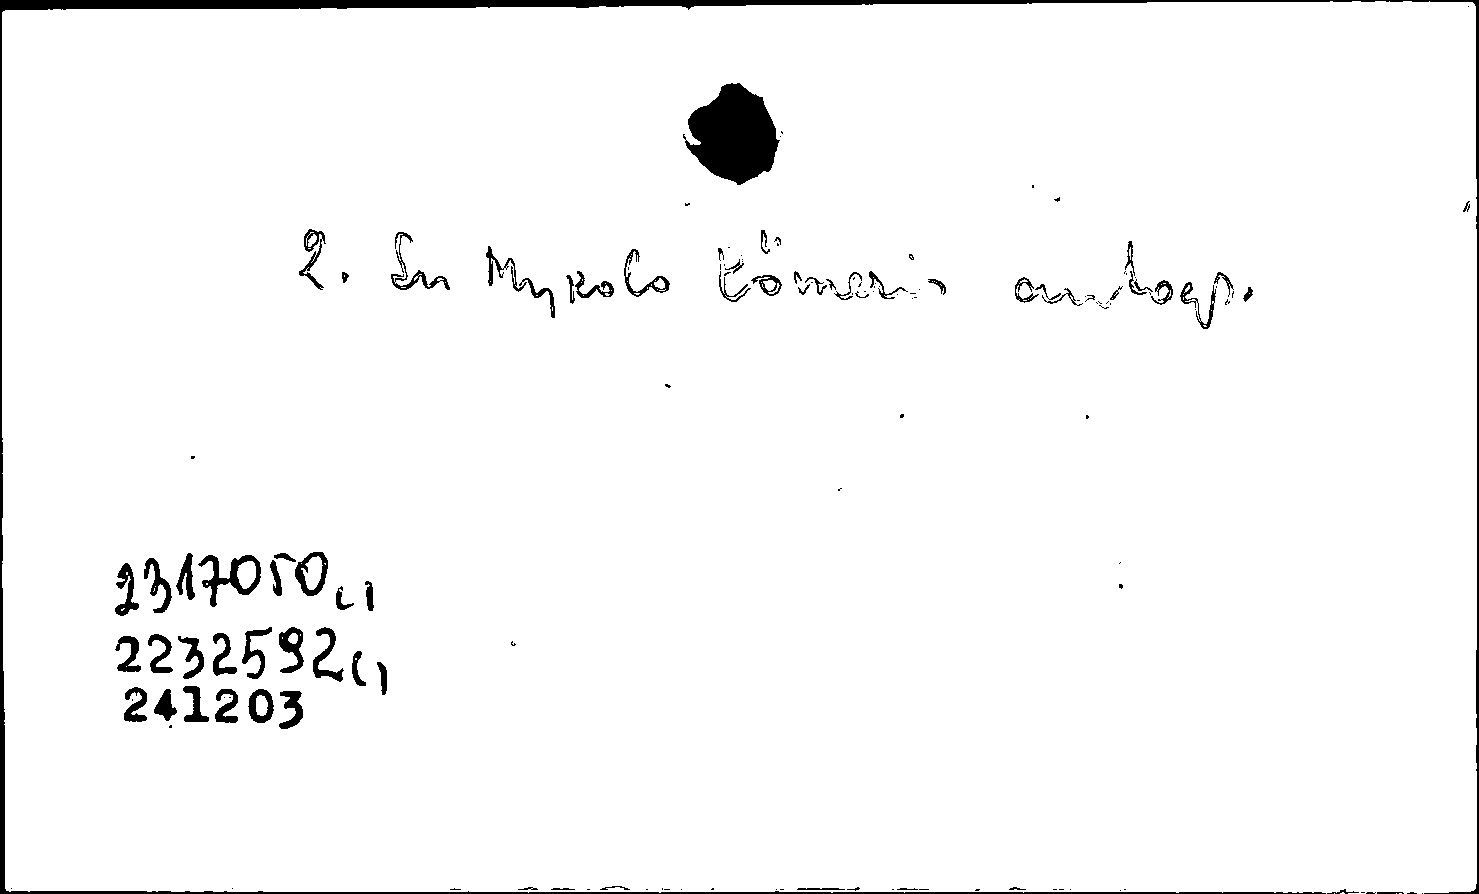 2. Su Mykolo Römerio autogr.
2317050 ( )
2232592 ( )
241203